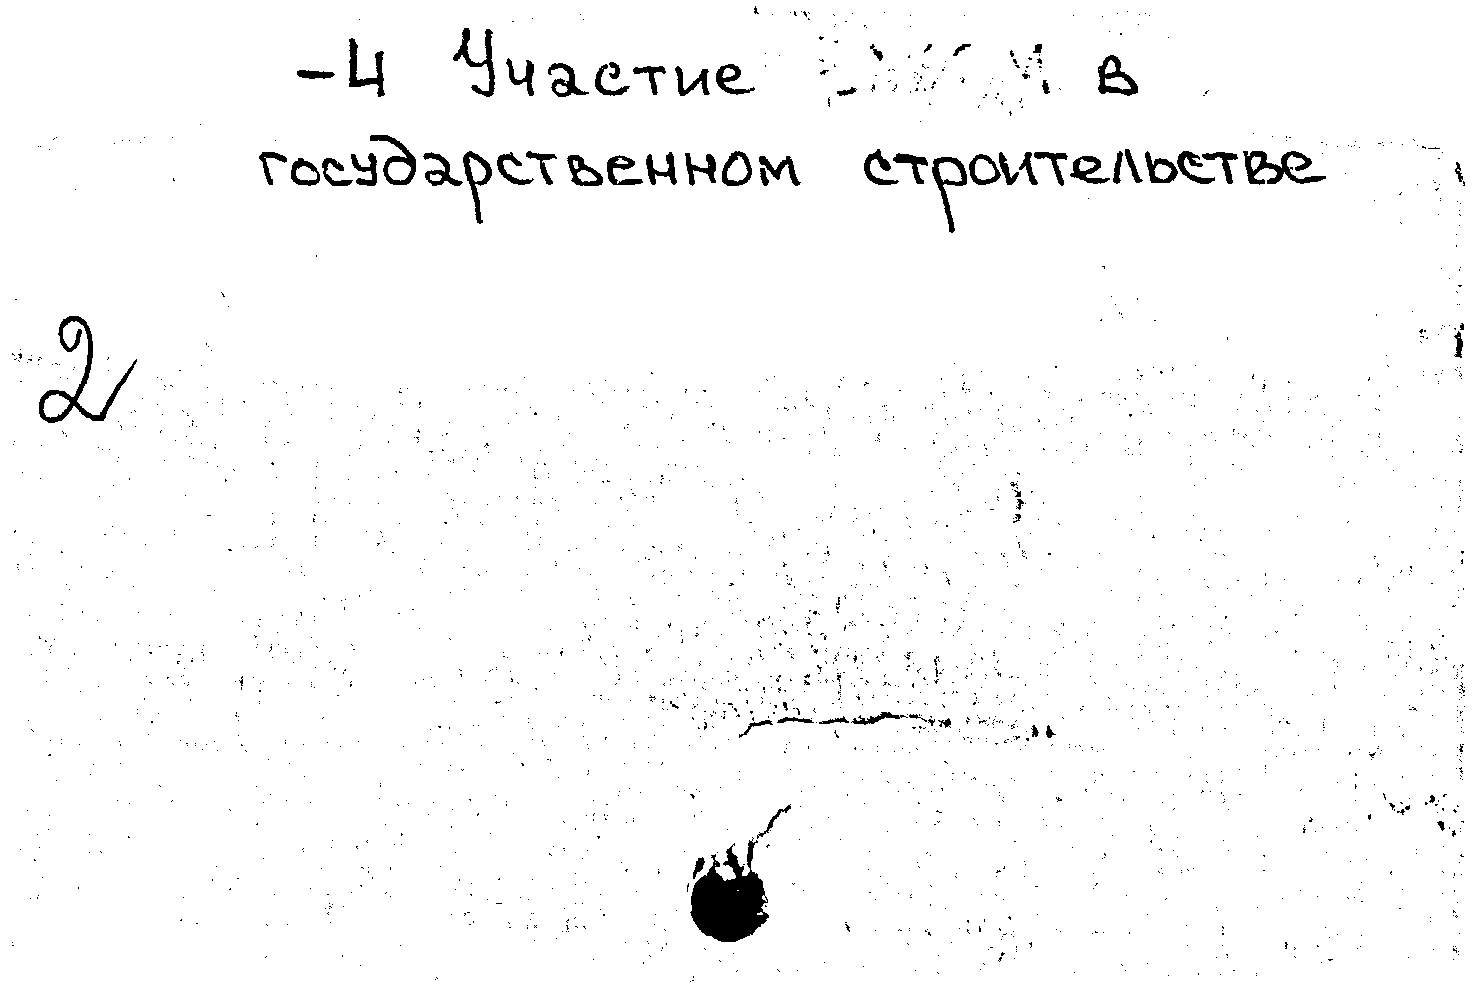 -4 Участие в
государственном строительстве
2